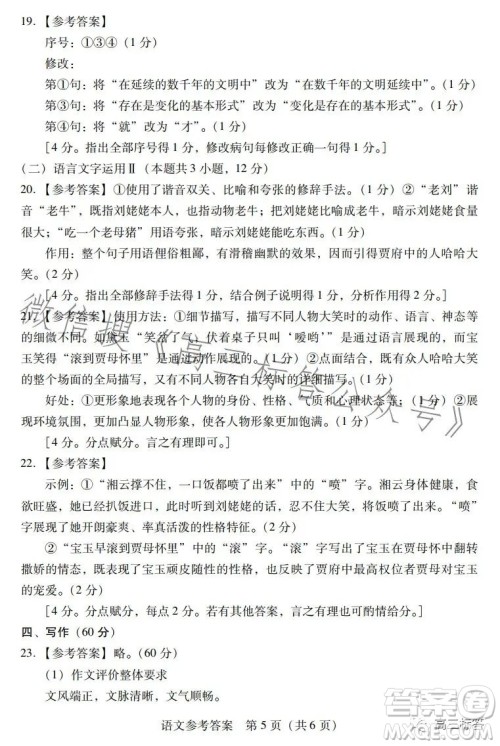 19. 【参考答案】
序号：①③④（1 分）
修改：
第①句：将“在延续的数千年的文明中”改为“在延续数千年的文明中”。（1 分）
第③句：将“存在与变化的基本形式”改为“存在与变化的基本形式”。（1 分）
第④句：将“就”改为“才”。（1 分）
[4 分。指出全部序号得 1 分，修改病句每修改一处得 1 分。]
（二）语言文字运用Ⅱ（本题共 3 小题，12 分）
20. 【参考答案】①使用了谐音双关、比喻和夸张的修辞手法。（1 分）②“老刘”谐
音“老牛”，既指刘姥姥，也指动物老牛；用比喻，暗示刘姥姥像老牛，暗示刘姥姥食
欲大；“吃一个老母猪”用语夸张，暗示刘姥姥能吃东西。（2 分）
作用：整个句子用语俚俗粗鄙，有滑稽幽默的效果，所以引来了贾府中的人哈哈大
笑。（1 分）
[4 分。指出全部修辞手法得 1 分，结合句子赏析得 2 分，说明作用得 1 分。]
21. 【参考答案】使用方法：①细节描写，展现了不同人物大笑时的动作、语言、神态等
的细微不同。如黛玉“笑岔了气，伏着桌子只叫‘嗳哟’”是通过动作和语言展现的，而宝
玉笑得“滚到贾母怀里”是通过动作展现的。（1 分）②点面结合，既有对众人哈哈大笑
的全局描写，又有对不同人物各自大笑时的详细描写。（1 分）
好处：①更形象地表现了人物的身份、性格、气质和心理状态等；（1 分）②在展
现环境氛围时，更加凸显人物形象，使各个人物形象更生动形象。（1 分）
[4 分。分点赋分，言之有理即可。]
22. 【参考答案】
示例：①“湘云撑不住，一口饭都喷了出来”中的“喷”字。湘云身体健康，食
欲旺盛，她已经扒饭进口，此时听到刘姥姥的话，忍不住大笑，把饭都喷了。“喷”字
展现了她开朗豪爽、率性而为的性格。（2 分）
②“宝玉早滚到贾母怀里”中“滚”字。“滚”写出了宝玉在贾母怀中翻来转去
撒娇的情态，这体现出了宝玉顽皮的性格，也从侧面反映出有极高地位的贾母对宝玉的
宠爱。（2 分）
[4 分。分点赋分，每点 2 分。若有其他答案，言之有理也可酌情给分。]
四、写作（60 分）
23. 【参考答案】略。（60 分）
（1）作文评价整体要求
文风端正，文脉清晰，文气顺畅。
语文参考答案 第 5 页（共 6 页）
微信搜《高三标答公众号》
高三标答